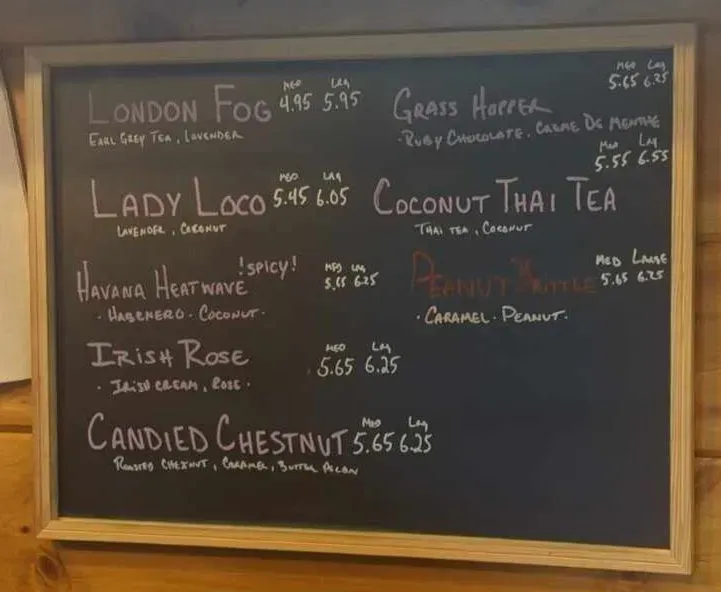 LONDON FOG
MED LRG
4.95 5.95
EARL GREY TEA, LAVENDER
LADY LOCO
MED LRG
5.45 6.05
LAVENDER, COCONUT
HAVANA HEATWAVE
!SPICY!
MED LRG
5.65 6.25
· HABENERO · COCONUT ·
IRISH ROSE
MED LRG
5.65 6.25
· IRISH CREAM, ROSE ·
CANDIED CHESTNUT
MED LRG
5.65 6.25
ROASTED CHESTNUT, CARAMEL, BUTTER PECAN
GRASS HOPPER
MED LRG
5.65 6.25
· RUBY CHOCOLATE · CREME DE MENTHE
COCONUT THAI TEA
MED LRG
5.55 6.55
THAI TEA, COCONUT
PEANUT BRITTLE
MED LARGE
5.65 6.25
· CARAMEL · PEANUT ·